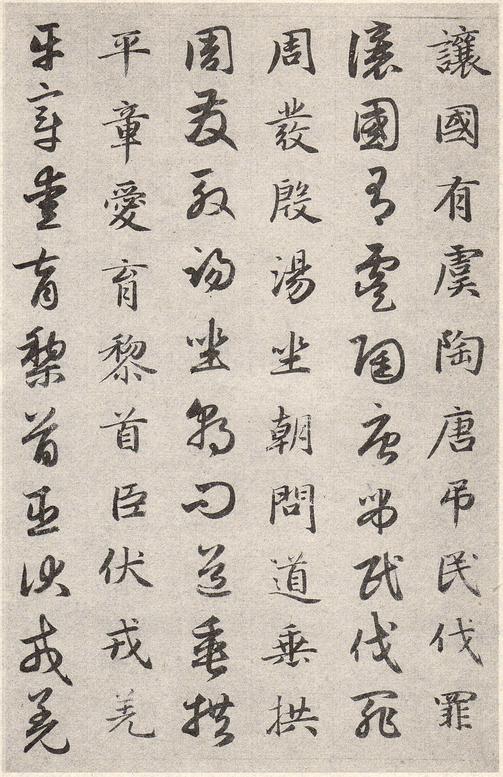 讓國有虞陶唐弔民伐罪
讓國有虞陶唐弔民伐罪
周發殷湯坐朝問道垂拱
周發殷湯坐朝問道垂拱
平章愛育黎首臣伏戎羌
平章愛育黎首臣伏戎羌